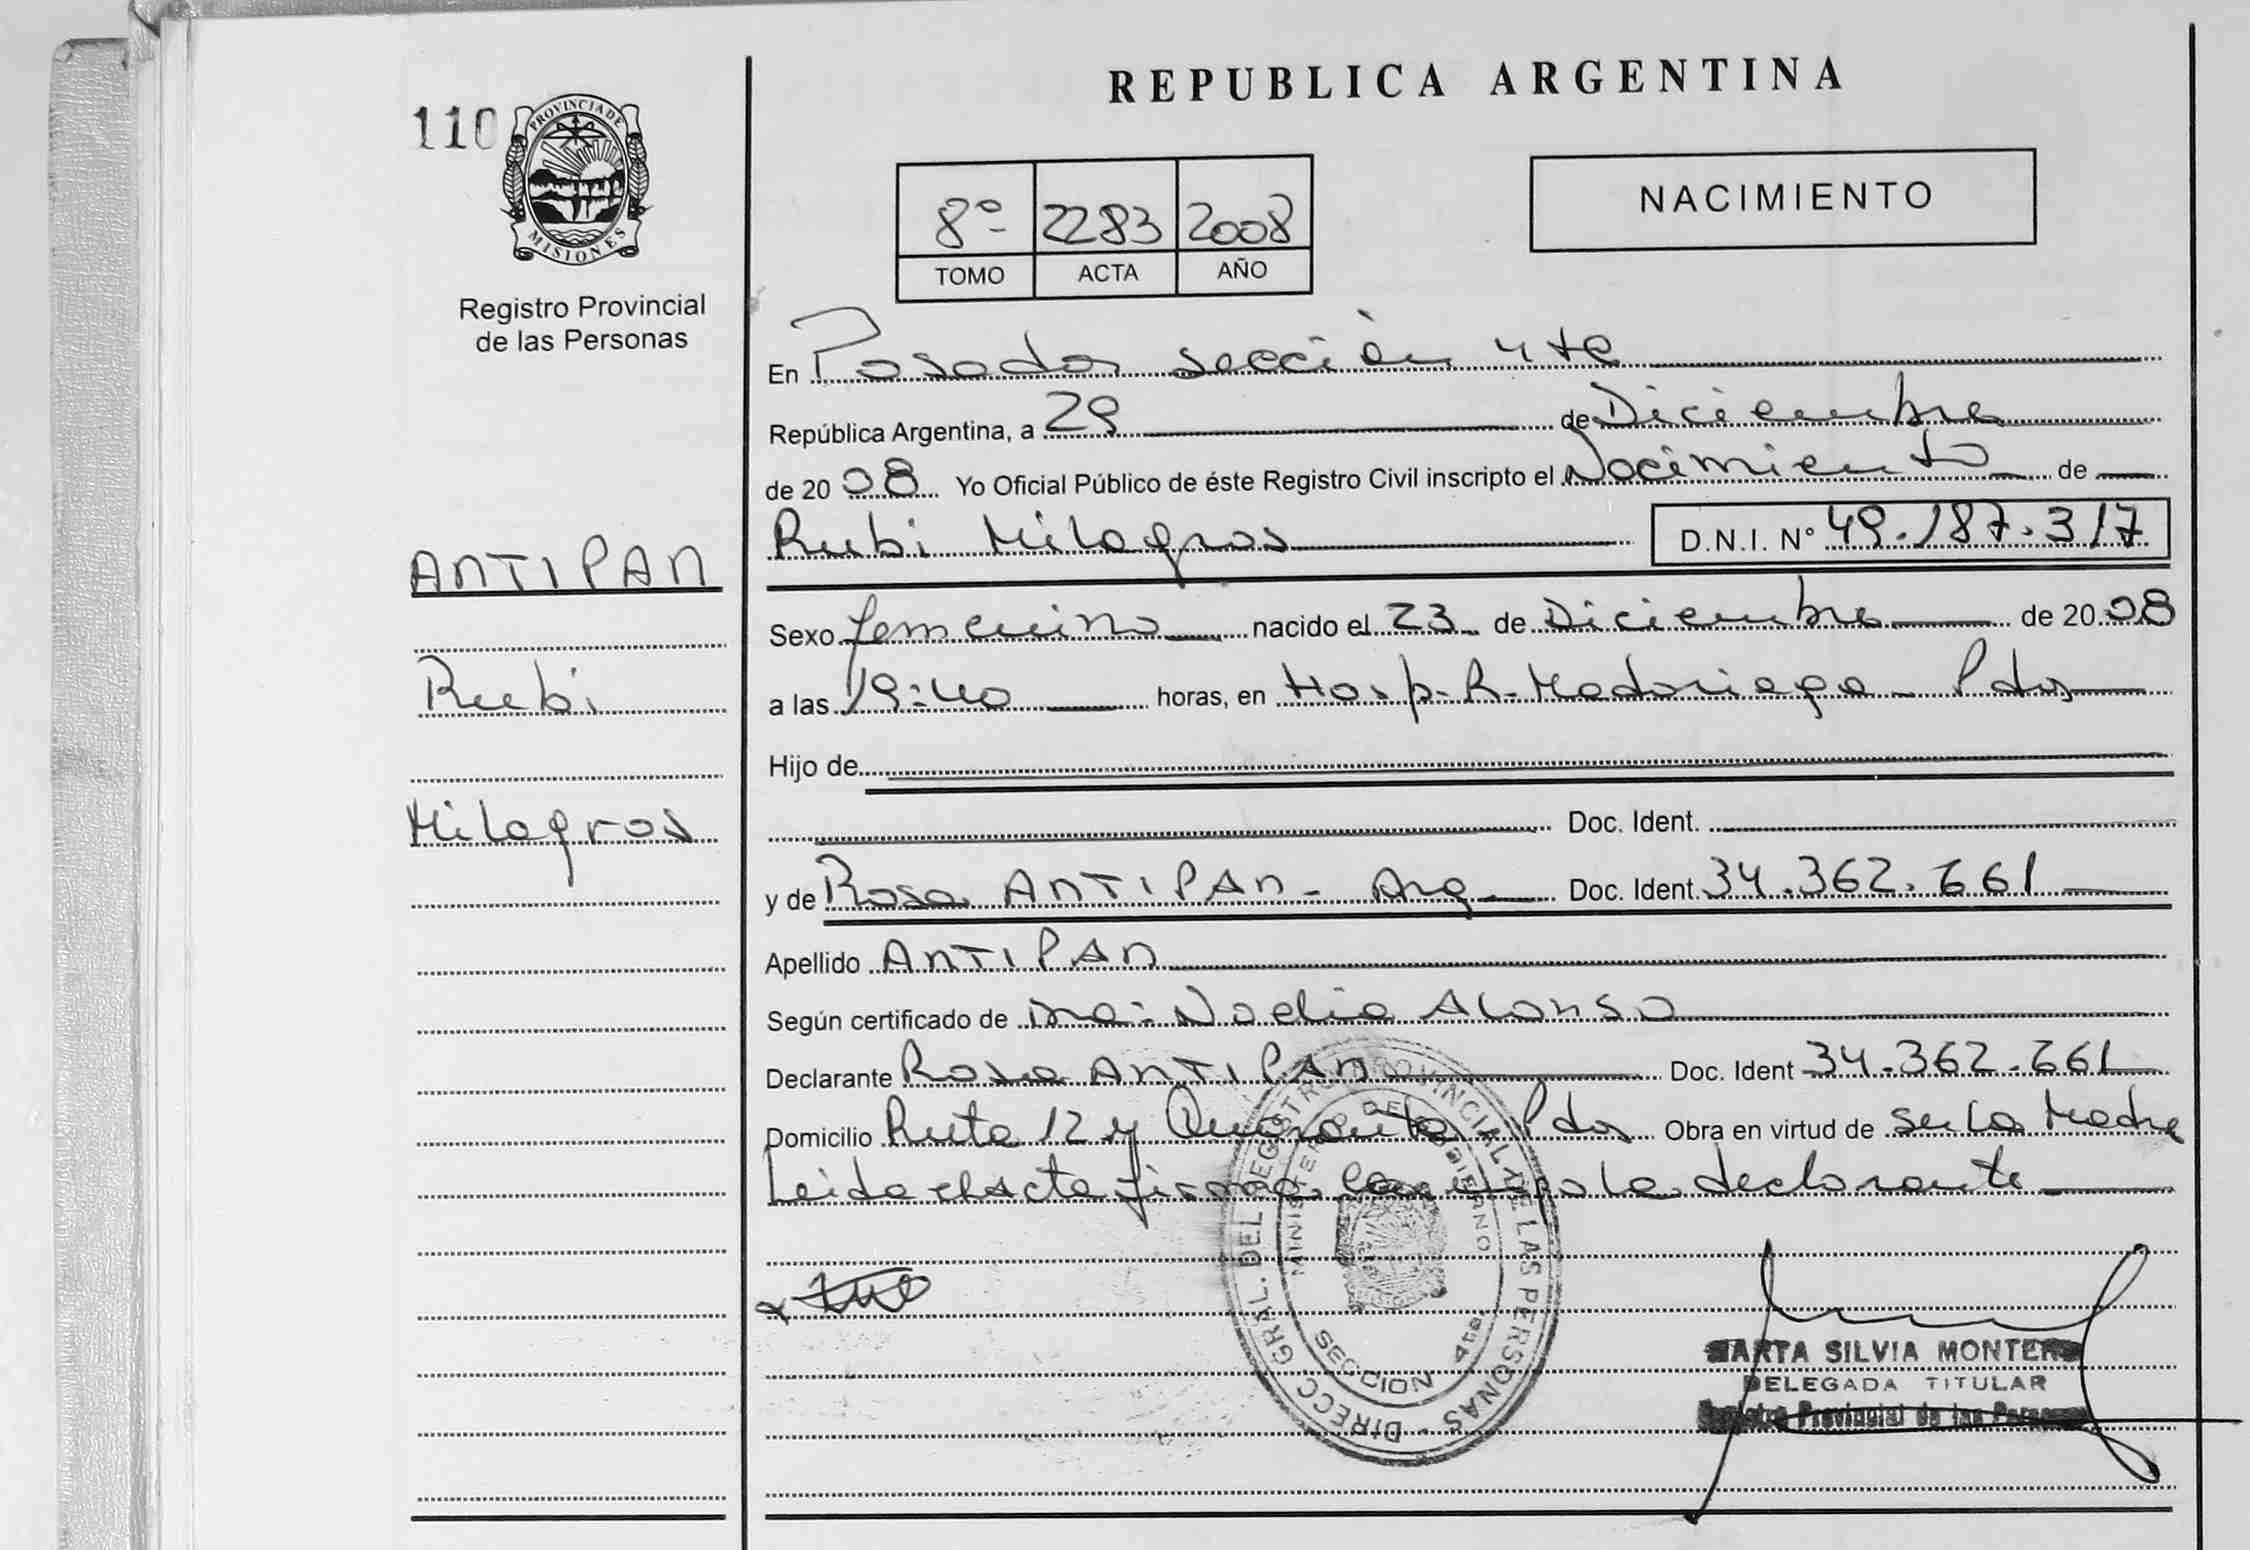 REPUBLICA ARGENTINA
110
PROVINCIA DE
MISIONES
Registro Provincial
de las Personas
8º 2283 2008
TOMO ACTA AÑO
NACIMIENTO
En Posadas sección 4ta
República Argentina, a 29 de Diciembre
de 2008 Yo Oficial Público de éste Registro Civil inscripto el Nacimiento de
Rubi Milagros D.N.I. Nº 49.187.317
ANTIPAN
Rubi
Milagros
Sexo femenino nacido el 23 de Diciembre de 2008
a las 19:40 horas, en Hosp. R. Madariaga - Pdas
Hijo de
Doc. Ident.
y de Rosa ANTIPAN - Arg Doc. Ident. 34.362.661
Apellido ANTIPAN
Según certificado de Dra. Noelia Alonso
Declarante Rosa ANTIPAN Doc. Ident 34.362.661
Domicilio Ruta 12 y Pdas Obra en virtud de ser la Madre
Leida el acta firma la declarante
DIRECC. GRAL. DEL REGISTRO PROVINCIAL DE LAS PERSONAS
MINISTERIO DE GOBIERNO
SECCION 4ta.
MARTA SILVIA MONTERO
DELEGADA TITULAR
Registro Provincial de las Personas